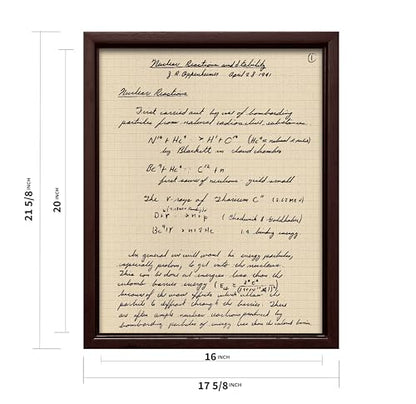 1
Nuclear Reactions and Stability
J. R. Oppenheimer April 28 1941
Nuclear Reactions
First carried out by use of bombarding
particles from natural radioactive substances.
N¹⁴ + He⁴ → H¹ + C¹² (He⁴ = natural α rays)
by Blackett in cloud chamber
Be⁹ + He⁴ → C¹² + n
first source of neutrons - yield small
The γ rays of Thorium C"
D + γ → n + p (Chadwick & Goldhaber)
Be⁹ + γ → n + 2 He binding energy
In general we will want to energy particles,
especially protons, to get into the nucleus.
This can be done at energies less than the
coulomb barrier energy
because of the wave effects which allow the
particle to diffract through the barrier. There
are often simple nuclear reactions produced by
bombarding particles of energy less than the coulomb barrier.
21 5/8 INCH
20 INCH
16 INCH
17 5/8 INCH